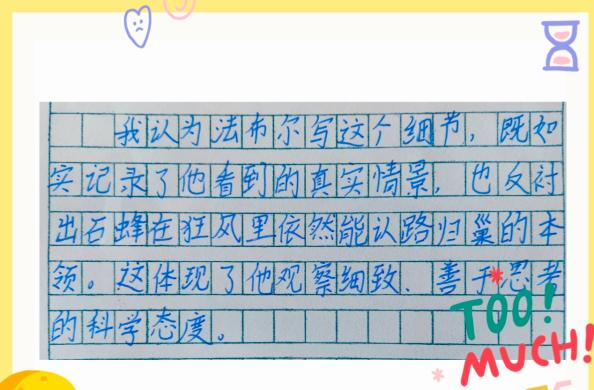 我认为法布尔写这个细节，既如
实记录了他看到的真实情景，也反衬
出石蜂在狂风里依然能认路归巢的本
领。这体现了他观察细致、善于思考
的科学态度。
TOO!
MUCH!